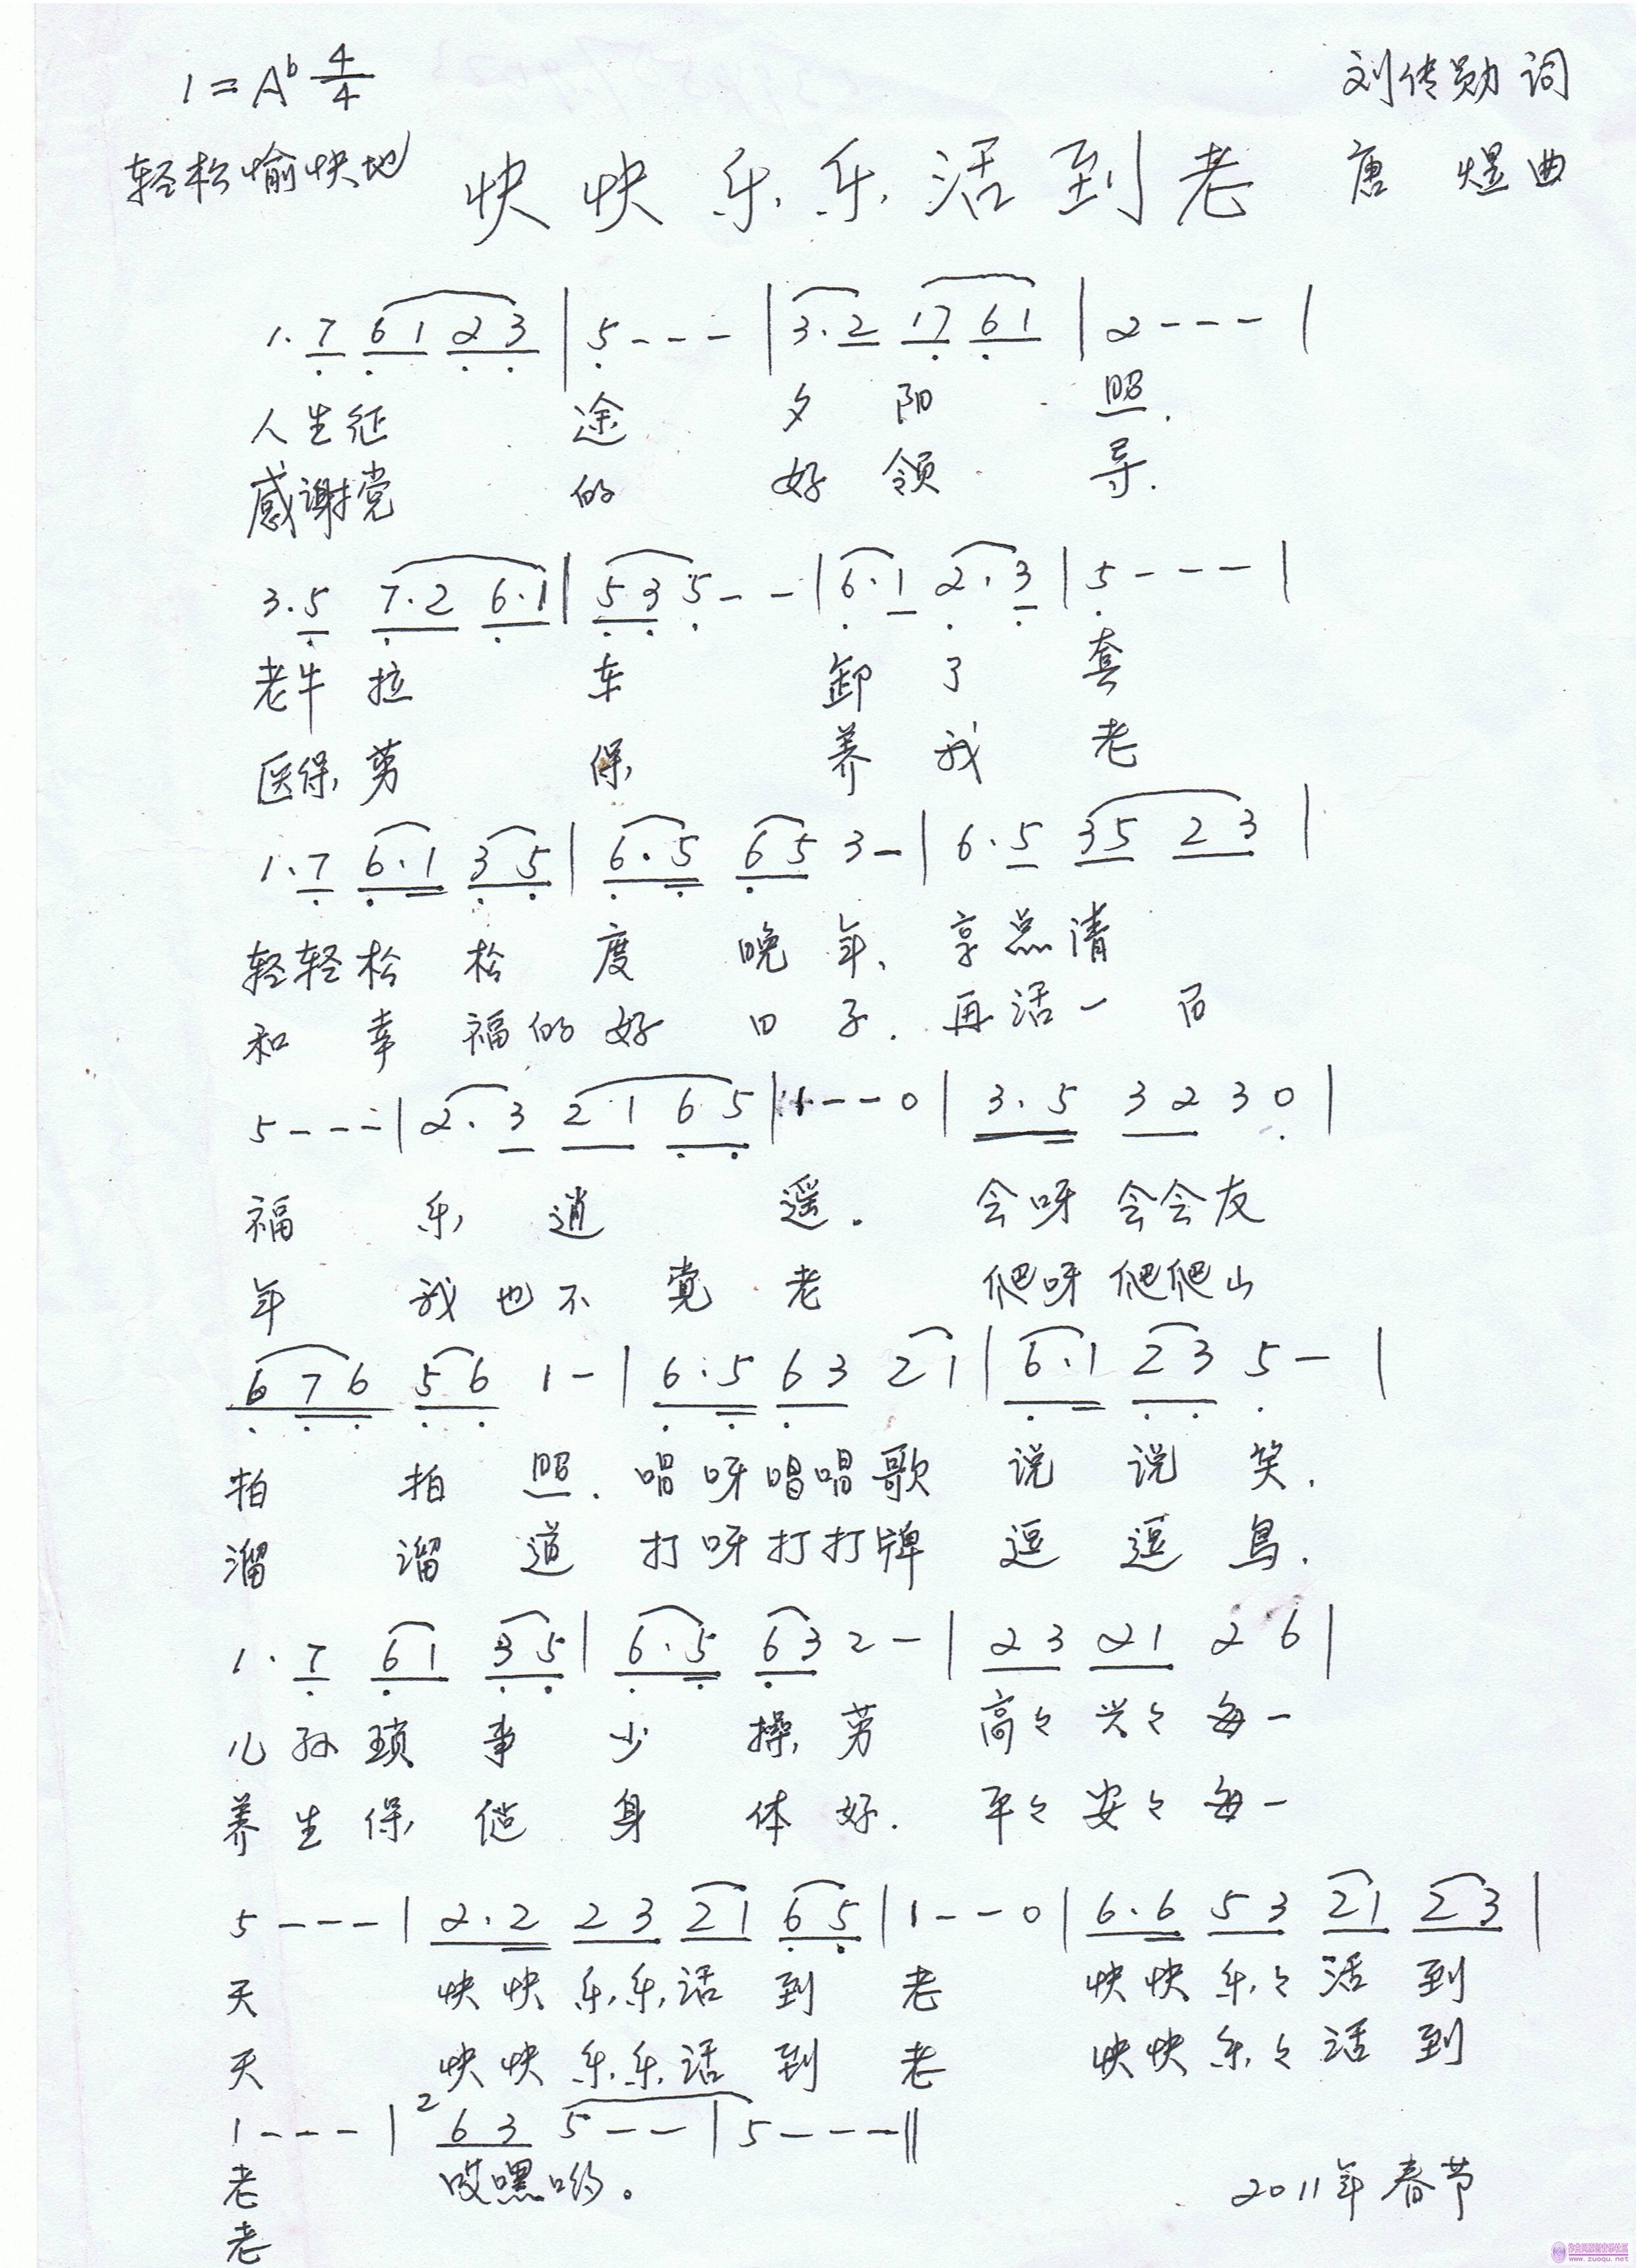 1=A♭ 4/4
刘传勋 词
轻松愉快地
快快乐乐活到老
唐 煜 曲
1. 7 6 1 2 3 | 5 - - - | 3. 2 1 7 6 1 | 2 - - - |
人生征 途 夕 阳 照.
感谢党 的 好 领 导.
3. 5 7. 2 6. 1 | 5 3 5 - - | 6. 1 2. 3 | 5 - - - |
老牛 拉 车 卸 了 套
医保, 劳 保, 养 我 老
1. 7 6. 1 3 5 | 6. 5 6 5 3 - | 6. 5 3 5 2 3 |
轻轻松 松 度 晚 年、 享点清
和 幸 福的好 日 子. 再活一 百
5 - - - | 2. 3 2 1 6 5 | 1 - - 0 | 3. 5 3 2 3 0 |
福 乐 逍 遥. 会呀 会会友
年 我也不 觉 老 爬呀 爬爬山
6 7 6 5 6 1 - | 6. 5 6 3 2 1 | 6. 1 2 3 5 - |
拍 拍 照. 唱呀唱唱歌 说 说 笑.
溜 溜 道 打呀打打牌 逗 逗 鸟.
1. 7 6 1 3 5 | 6. 5 6 3 2 - | 2 3 2 1 2 6 |
儿孙琐 事 少 操 劳 高々 兴々 每一
养生保 健 身 体 好. 平々 安々 每一
5 - - - | 2. 2 2 3 2 1 6 5 | 1 - - 0 | 6. 6 5 3 2 1 2 3 |
天 快快 乐乐活 到 老 快快 乐々 活 到
天 快快 乐乐活 到 老 快快 乐々 活 到
1 - - - | 2 6 3 5 - - | 5 - - - ||
老 哎嘿哟。
2011年 春节
老
www.zuoqu.net